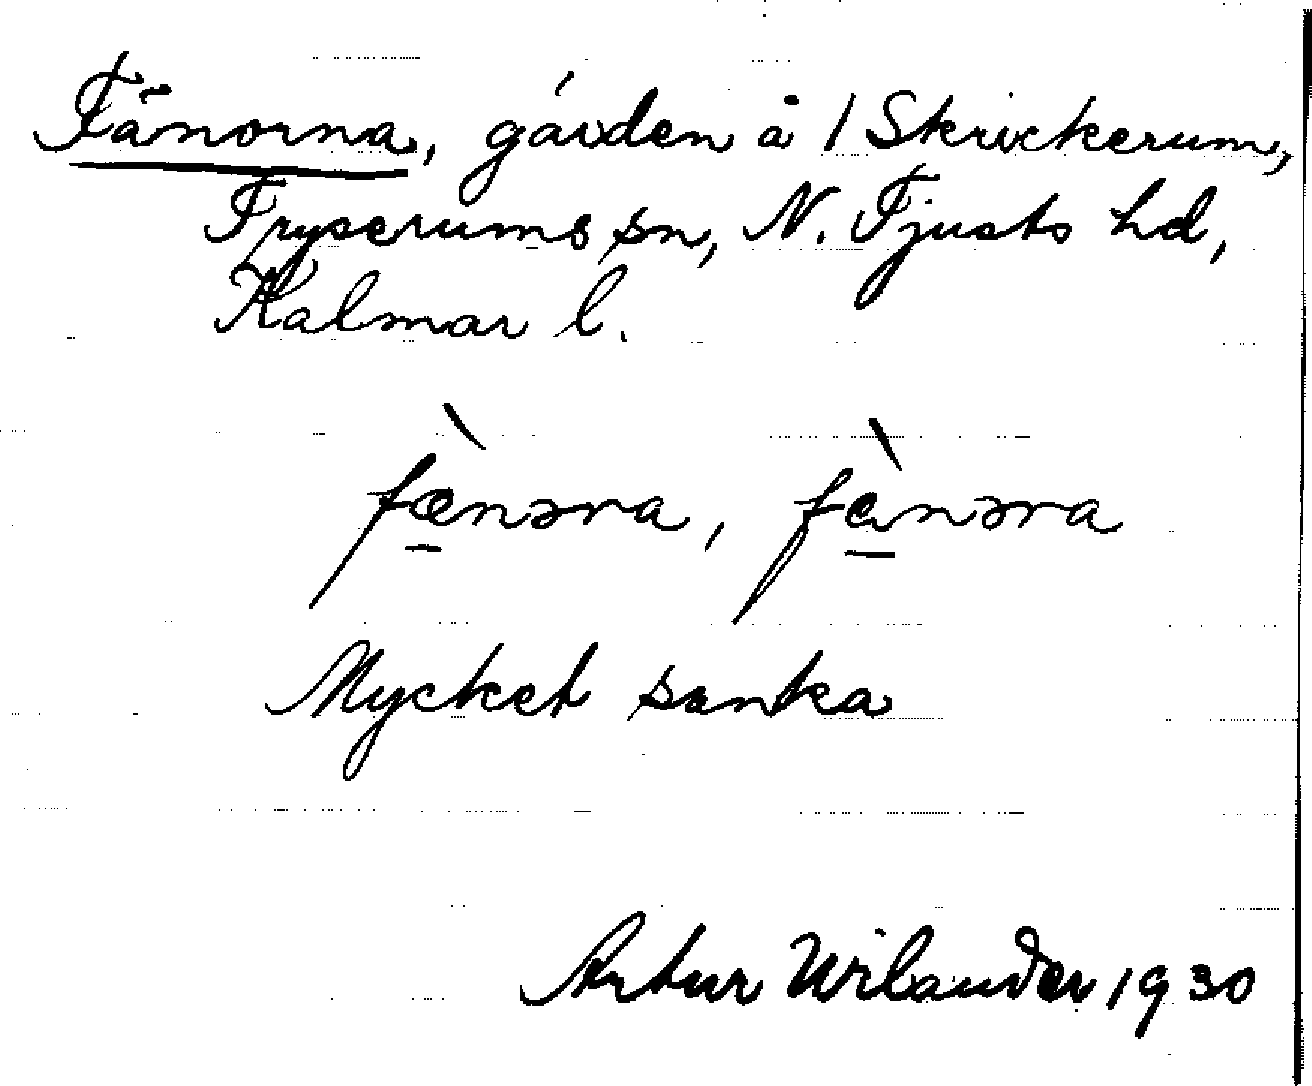 Fänorna, gärden å 1 Skrickerum,
Tryserums sn, N. Tjusts hd,
Kalmar l.
fæ̀nəra, fànəra
Mycket sanka
Artur Wilander 1930